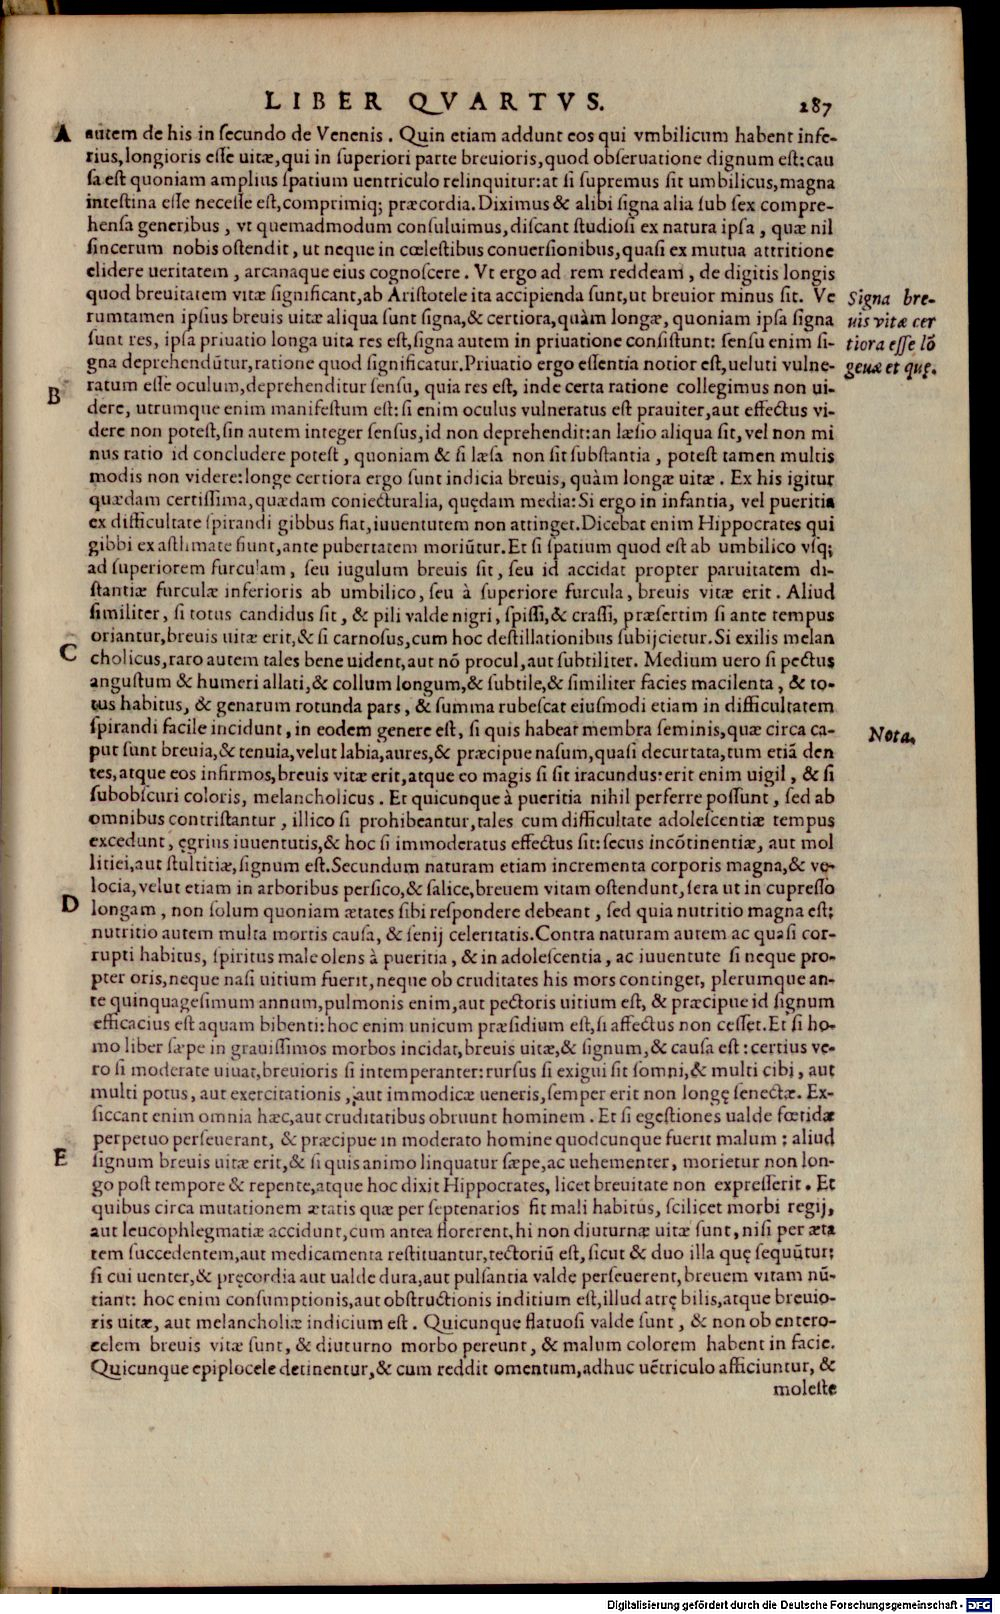 LIBER QVARTVS. 287
A autem de his in secundo de Venenis. Quin etiam addunt eos qui vmbilicum habent infe-
rius, longioris esse uitæ, qui in superiori parte breuioris, quod obseruatione dignum est: cau
sa est quoniam amplius spatium uentriculo relinquitur: at si supremus sit umbilicus, magna
intestina esse necesse est, comprimiq; præcordia. Diximus & alibi signa alia sub sex compre-
hensa generibus, vt quemadmodum consuluimus, discant studiosi ex natura ipsa, quæ nil
sincerum nobis ostendit, ut neque in cœlestibus conuersionibus, quasi ex mutua attritione
elidere ueritatem, arcanaque eius cognoscere. Vt ergo ad rem reddeam, de digitis longis
quod breuitatem vitæ significant, ab Aristotele ita accipienda sunt, ut breuior minus sit. Ve
rumtamen ipsius breuis uitæ aliqua sunt signa, & certiora, quàm longæ, quoniam ipsa signa
sunt res, ipsa priuatio longa uita res est, signa autem in priuatione consistunt: sensu enim si-
gna deprehendūtur, ratione quod significatur. Priuatio ergo essentia notior est, ueluti vulne-
Signa bre-
uis vitæ cer
tiora esse lō
geuæ et quę.
B ratum esse oculum, deprehenditur sensu, quia res est, inde certa ratione collegimus non ui-
dere, utrumque enim manifestum est: si enim oculus vulneratus est prauiter, aut effectus vi-
dere non potest, sin autem integer sensus, id non deprehendit: an læsio aliqua sit, vel non mi
nus ratio id concludere potest, quoniam & si læsa non sit substantia, potest tamen multis
modis non videre: longe certiora ergo sunt indicia breuis, quàm longæ uitæ. Ex his igitur
quædam certissima, quædam coniecturalia, quędam media: Si ergo in infantia, vel pueritia
ex difficultate spirandi gibbus fiat, iuuentutem non attinget. Dicebat enim Hippocrates qui
gibbi ex asthmate fiunt, ante pubertatem moriūtur. Et si spatium quod est ab umbilico vsq;
ad superiorem furculam, seu iugulum breuis sit, seu id accidat propter paruitatem di-
stantiæ furculæ inferioris ab umbilico, seu à superiore furcula, breuis vitæ erit. Aliud
similiter, si totus candidus sit, & pili valde nigri, spissi, & crassi, præsertim si ante tempus
oriantur, breuis uitæ erit, & si carnosus, cum hoc destillationibus subijcietur. Si exilis melan
C cholicus, raro autem tales bene uident, aut nō procul, aut subtiliter. Medium uero si pectus
angustum & humeri allati, & collum longum, & subtile, & similiter facies macilenta, & to-
tus habitus, & genarum rotunda pars, & summa rubescat eiusmodi etiam in difficultatem
spirandi facile incidunt, in eodem genere est, si quis habeat membra seminis, quæ circa ca-
put sunt breuia, & tenuia, velut labia, aures, & præcipue nasum, quasi decurtata, tum etiā den
Nota.
tes, atque eos infirmos, breuis vitæ erit, atque eo magis si sit iracundus: erit enim uigil, & si
subobscuri coloris, melancholicus. Et quicunque à pueritia nihil perferre possunt, sed ab
omnibus contristantur, illico si prohibeantur, tales cum difficultate adolescentiæ tempus
excedunt, ęgrius iuuentutis, & hoc si immoderatus effectus sit: secus incōtinentiæ, aut mol
litiei, aut stultitiæ, signum est. Secundum naturam etiam incrementa corporis magna, & ve-
locia, velut etiam in arboribus persico, & salice, breuem vitam ostendunt, sera ut in cupresso
D longam, non solum quoniam ætates sibi respondere debeant, sed quia nutritio magna est;
nutritio autem multa mortis causa, & senij celeritatis. Contra naturam autem ac quasi cor-
rupti habitus, spiritus male olens à pueritia, & in adolescentia, ac iuuentute si neque pro-
pter oris, neque nasi uitium fuerit, neque ob cruditates his mors continget, plerumque an-
te quinquagesimum annum, pulmonis enim, aut pectoris uitium est, & præcipue id signum
efficacius est aquam bibenti: hoc enim unicum præsidium est, si affectus non cesset. Et si ho-
mo liber sæpe in grauissimos morbos incidat, breuis uitæ, & signum, & causa est: certius ve-
ro si moderate uiuat, breuioris si intemperanter: rursus si exigui sit somni, & multi cibi, aut
multi potus, aut exercitationis, aut immodicæ ueneris, semper erit non longę senectæ. Ex-
siccant enim omnia hæc, aut cruditatibus obruunt hominem. Et si egestiones ualde fœtidæ
perpetuo perseuerant, & præcipue in moderato homine quodcunque fuerit malum; aliud
E signum breuis uitæ erit, & si quis animo linquatur sæpe, ac uehementer, morietur non lon-
go post tempore & repente, atque hoc dixit Hippocrates, licet breuitate non expresserit. Et
quibus circa mutationem ætatis quæ per septenarios fit mali habitus, scilicet morbi regij,
aut leucophlegmatiæ accidunt, cum antea florerent, hi non diuturnæ uitæ sunt, nisi per æta
tem succedentem, aut medicamenta restituantur, tectoriū est, sicut & duo illa quę sequūtur:
si cui uenter, & pręcordia aut ualde dura, aut pulsantia valde perseuerent, breuem vitam nū-
tiant: hoc enim consumptionis, aut obstructionis inditium est, illud atrę bilis, atque breuio-
ris uitæ, aut melancholiæ indicium est. Quicunque flatuosi valde sunt, & non ob entero-
celem breuis vitæ sunt, & diuturno morbo pereunt, & malum colorem habent in facie.
Quicunque epiplocele detinentur, & cum reddit omentum, adhuc uētriculo afficiuntur, &
moleste
Digitalisierung gefördert durch die Deutsche Forschungsgemeinschaft - DFG